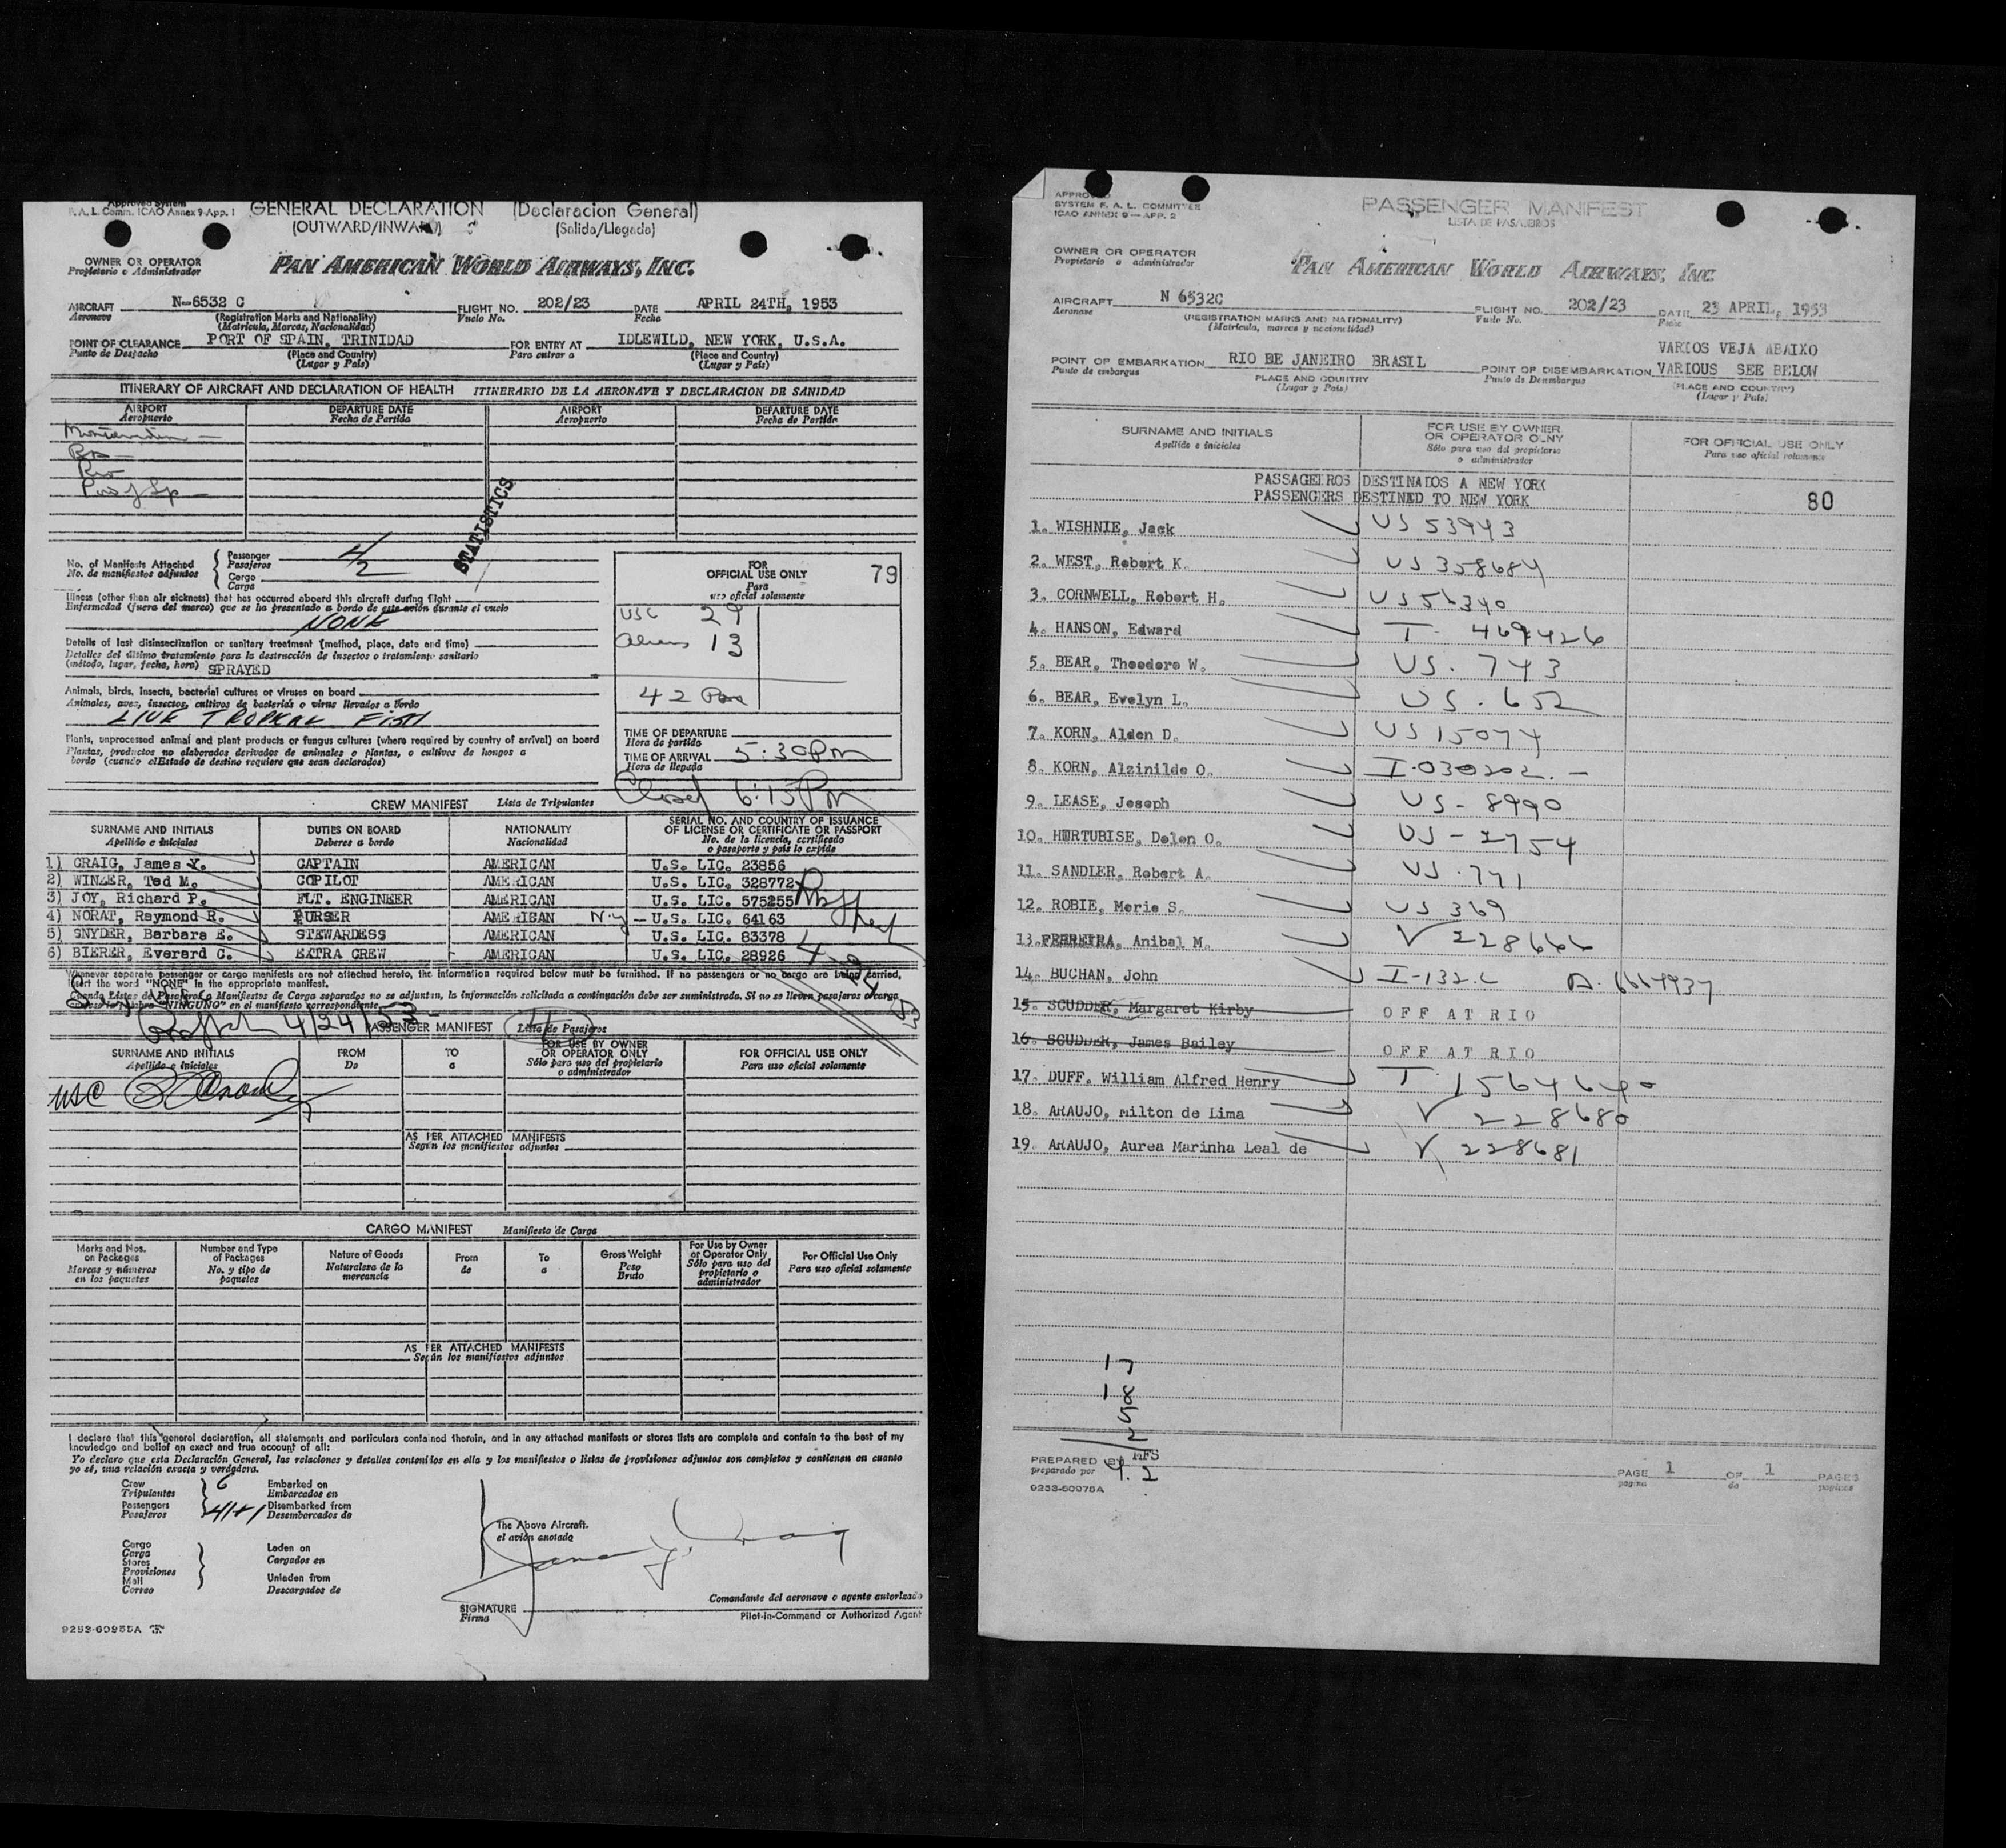 Approved System
F. A. L. Comm. ICAO Annex 9-App. 1
GENERAL DECLARATION (Declaracion General)
(OUTWARD/INWARD) (Salida/Llegada)
OWNER OR OPERATOR
Propietario o Administrador
PAN AMERICAN WORLD AIRWAYS, INC.
AIRCRAFT N-6532 C FLIGHT NO. 202/23 DATE APRIL 24TH, 1953
Aeronave (Registration Marks and Nationality) Vuelo No. Fecha
(Matricula, Marcas, Nacionalidad)
POINT OF CLEARANCE PORT OF SPAIN, TRINIDAD FOR ENTRY AT IDLEWILD, NEW YORK, U.S.A.
Punto de Despacho (Place and Country) Para entrar a (Place and Country)
(Lugar y País) (Lugar y País)
ITINERARY OF AIRCRAFT AND DECLARATION OF HEALTH ITINERARIO DE LA AERONAVE Y DECLARACION DE SANIDAD
AIRPORT DEPARTURE DATE AIRPORT DEPARTURE DATE
Aeropuerto Fecha de Partida Aeropuerto Fecha de Partida
Montevideo
BA
Rio
Port of Sp
STATISTICS
No. of Manifests Attached
No. de manifiestos adjuntos
Passenger 4
Pasajeros
Cargo 2
Carga
Illness (other than air sickness) that has occurred aboard this aircraft during flight
Enfermedad (fuera del mareo) que se ha presentado a bordo de este avión durante el vuelo
NONE
Details of last disinsectization or sanitary treatment (method, place, date and time)
Detalles del último tratamiento para la destrucción de insectos o tratamiento sanitario
(método, lugar, fecha, hora) SPRAYED
Animals, birds, insects, bacterial cultures or viruses on board
Animales, aves, insectos, cultivos de bacterias o virus llevados a bordo
LIVE TROPICAL FISH
Plants, unprocessed animal and plant products or fungus cultures (where required by country of arrival) on board
Plantas, productos no elaborados derivados de animales o plantas, o cultivos de hongos a
bordo (cuando el Estado de destino requiere que sean declarados)
FOR
OFFICIAL USE ONLY 79
Para
uso oficial solamente
USC 29
Aliens 13
42 Pax
TIME OF DEPARTURE
Hora de partida
TIME OF ARRIVAL 5:30 Pm
Hora de llegada
Closed 6:15 Pm
CREW MANIFEST Lista de Tripulantes
SURNAME AND INITIALS DUTIES ON BOARD NATIONALITY SERIAL NO. AND COUNTRY OF ISSUANCE OF LICENSE OR CERTIFICATE OR PASSPORT
Apellido e iniciales Deberes a bordo Nacionalidad No. de la licencia, certificado o pasaporte y país lo expide
1) CRAIG, James Y. CAPTAIN AMERICAN U.S. LIC. 23856
2) WINZER, Ted M. COPILOT AMERICAN U.S. LIC. 328772
3) JOY, Richard P. FLT. ENGINEER AMERICAN U.S. LIC. 575255
4) NORAT, Raymond R. PURSER AMERICAN N.Y. — U.S. LIC. 64163
5) SNYDER, Barbara E. STEWARDESS AMERICAN U.S. LIC. 83378
6) BIERER, Everard C. EXTRA CREW AMERICAN U.S. LIC. 28926
Whenever separate passenger or cargo manifests are not attached hereto, the information required below must be furnished. If no passengers or no cargo are being carried,
insert the word "NONE" in the appropriate manifest.
Cuando Listas de Pasajeros o Manifiestos de Carga separados no se adjuntan, la información solicitada a continuación debe ser suministrada. Si no se lleven pasajeros o carga
"NINGUNO" en el manifiesto correspondiente.
4/24/53
PASSENGER MANIFEST Lista de Pasajeros
SURNAME AND INITIALS FROM TO FOR USE BY OWNER OR OPERATOR ONLY FOR OFFICIAL USE ONLY
Apellido e iniciales De a Sólo para uso del propietario o administrador Para uso oficial solamente
USC
AS PER ATTACHED MANIFESTS
Según los manifiestos adjuntos
CARGO MANIFEST Manifiesto de Carga
Marks and Nos. on Packages Number and Type of Packages Nature of Goods From To Gross Weight For Use by Owner or Operator Only For Official Use Only
Marcas y números en los paquetes No. y tipo de paquetes Naturaleza de la mercancia de a Peso Bruto Sólo para uso del propietario o administrador Para uso oficial solamente
AS PER ATTACHED MANIFESTS
Según los manifiestos adjuntos
I declare that this general declaration, all statements and particulars contained therein, and in any attached manifests or stores lists are complete and contain to the best of my
knowledge and belief an exact and true account of all:
Yo declaro que esta Declaración General, las relaciones y detalles contenidos en ella y los manifiestos o listas de provisiones adjuntos son completos y contienen en cuanto
yo sé, una relación exacta y verdadera.
Crew 6 Embarked on
Tripulantes Embarcados en
Passengers 41+1 Disembarked from
Pasajeros Desembarcados de
The Above Aircraft.
el avión anotado
Cargo Laden on
Carga Cargados en
Stores
Provisiones Unladen from
Mail Descargados de
Correo
Comandante del aeronave o agente autorizado
SIGNATURE
Firma Pilot-in-Command or Authorized Agent
9253-60955A
APPROVED
SYSTEM F. A. L. COMMITTEE
ICAO ANNEX 9—APP. 2
PASSENGER MANIFEST
LISTA DE PASAJEROS
OWNER OR OPERATOR
Propietario o administrador
PAN AMERICAN WORLD AIRWAYS, INC
AIRCRAFT N 6532C FLIGHT NO. 202/23 DATE 23 APRIL, 1953
Aeronave (REGISTRATION MARKS AND NATIONALITY) Vuelo No. Fecha
(Matricula, marcas y nacionalidad)
VARIOS VEJA ABAIXO
POINT OF EMBARKATION RIO DE JANEIRO BRASIL POINT OF DISEMBARKATION VARIOUS SEE BELOW
Punto de embarque PLACE AND COUNTRY Punto de Desembarque (PLACE AND COUNTRY)
(Lugar y País) (Lugar y País)
SURNAME AND INITIALS FOR USE BY OWNER OR OPERATOR OLNY FOR OFFICIAL USE ONLY
Apellido e iniciales Sólo para uso del propietario o administrador Para uso oficial solamente
PASSAGEIROS DESTINADOS A NEW YORK
PASSENGERS DESTINED TO NEW YORK 80
1. WISHNIE, Jack US 53943
2. WEST, Robert K. US 358684
3. CORNWELL, Robert H. US 56340
4. HANSON, Edward T. 469426
5. BEAR, Theodore W. US. 743
6. BEAR, Evelyn L. US. 652
7. KORN, Alden D. US 15074
8. KORN, Alzinilde O. I-030202. —
9. LEASE, Joseph US- 8990
10. HURTUBISE, Delen O. US- 2754
11. SANDLER, Robert A. US. 771
12. ROBIE, Merie S. US 369
13. FERREIRA, Anibal M. V 228666
14. BUCHAN, John I-132.C A. 6664937
15. SCUDDER, Margaret Kirby OFF AT RIO
16. SCUDDER, James Bailey OFF AT RIO
17. DUFF, William Alfred Henry T. 1564640
18. ARAUJO, Milton de Lima V 228680
19. ARAUJO, Aurea Marinha Leal de V 228681
PREPARED BY MFS
preparado por
PAGE 1 OF 1 PAGES
pagina de páginas
9253-60976A